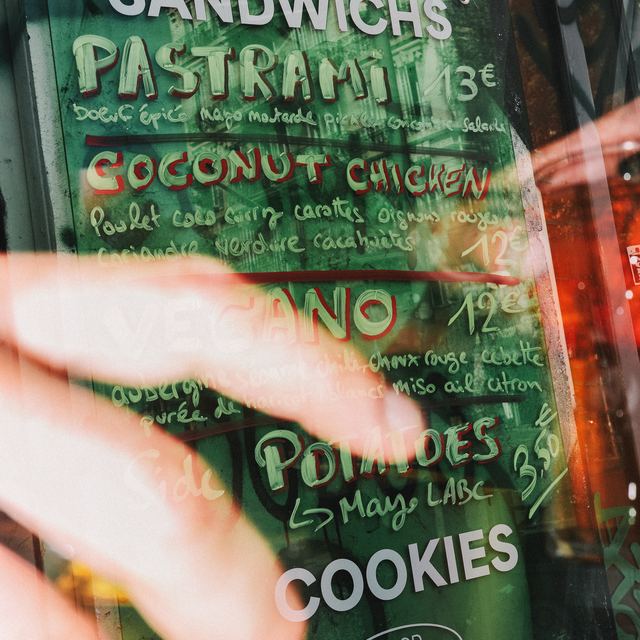 SANDWICHS
PASTRAMI 13€
boeuf épicé mayo moutarde pickles concombre salade
COCONUT CHICKEN
Poulet coco curry carottes oignons rouges
coriandre verdure cacahuètes 12€
VEGANO 12€
aubergine chili choux rouge cebette
purée de miso ail citron
Side POTATOES 3,50€
↳ Mayo LABC
COOKIES